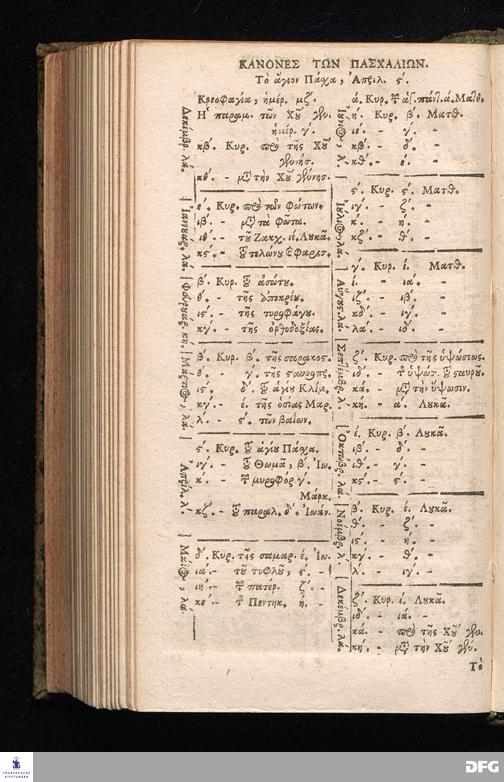 ΚΑΝΟΝΕΣ ΤΩΝ ΠΑΣΧΑΛΙΩΝ.
Τὸ ἅγιον Πάσχα, Ἀπριλ. ς΄.
Κρεοφαγία, ἡμέρ. μζ΄.
Δεκέμβρ. λά.
Ἡ παραμ. τῶν Χῦ γέν.
ἡμέρ. γ΄.
κβ΄. Κυρ. πρὸ τῆς Χῦ
γεννήσ.
κθ΄. - μετὰ τὴν Χῦ γέννησ.
Ἰαννουάρ. λά.
ε΄. Κυρ. πρὸ τῶν Φώτων.
ιβ΄. - μετὰ τὰ Φῶτα.
ιθ΄. - τοῦ Ζακχ. ιέ. Λουκᾶ.
κς΄. - τοῦ τελώνου ἐ Φαρισ.
Φευρουάρ. κή.
β΄. Κυρ. τοῦ ἀσώτου.
θ΄. - τῆς ἀποκρέω.
ις΄. - τῆς τυροφάγου.
κγ΄. - τῆς ὀρθοδοξίας.
Μάρτιος, λά.
β΄. Κυρ. β΄. τῆς σαρακοσ.
θ΄. - γ΄. τῆς σταυροπς.
ις΄. δ΄. τοῦ ἁγίου Κλίμ.
κγ΄. - έ. τῆς ὁσίας Μαρ.
λ΄. - ς΄. τῶν βαΐων.
Ἀπρίλ. λ΄.
ς΄. Κυρ. τοῦ ἁγίου Πάσχα.
ιγ΄. - τοῦ Θωμᾶ, β΄. Ἰω.
κ΄. - τῶν μυροφόρ γ΄.
Μαρκ.
κζ΄. - τοῦ παραλ. δ΄. Ἰωάν.
Μάϊος, λά.
δ΄. Κυρ. τῆς σαμαρ. έ. Ἰω.
ια΄. - τοῦ τυφλοῦ, ς΄. -
ιή. - τῶν πατέρ. ζ΄. -
κε΄. - τῆς Πεντηκ. ή. -
ά. Κυρ. τῶν ἁγ. πάντ. ά. Ματθ.
Ἰούνιος, λ΄.
ή. Κυρ. β΄. Ματθ.
ιε. - γ΄. -
κβ΄. - δ΄. -
κθ΄. - έ. -
Ἰούλιος, λα.
ς΄. Κυρ. ς΄. Ματθ.
ιγ΄. - ζ΄. -
κ΄. - η. -
κζ΄. - θ΄. -
Αὔγουσ. λα.
γ΄. Κυρ. ί. Ματθ.
ί. - ιά. -
ιζ΄. - ιβ΄. -
κδ΄. - ιγ΄. -
λα΄. - ιδ΄. -
Σεπτέμβρ. λ΄.
ζ΄. Κυρ. πρὸ τῆς ὑψώσεως.
ιδ΄. - ἡ ὕψωσ. τοῦ σταυροῦ.
κά. - μετὰ τὴν ὕψωσιν.
κή. - ά. Λουκᾶ.
Ὀκτώβρ. λά.
έ. Κυρ. β΄. Λουκᾶ.
ιβ΄. - δ΄. -
ιθ΄. - γ΄. -
κς΄. - ς΄. -
Νοέμβρ. λ΄.
β΄. Κυρ. έ. Λουκᾶ.
θ΄. - ζ΄. -
ις΄. - ή. -
κγ΄. - θ΄. -
λ΄. - ιγ΄. -
Δεκέμβρ. λά.
ζ΄. Κυρ. ί. Λουκᾶ.
ιδ΄. - ιά. -
κά. - πρὸ τῆς Χῦ γέν.
κή. - μετὰ τὴν Χῦ γέν.
Τὸ
FRANCKESCHE STIFTUNGEN
DFG